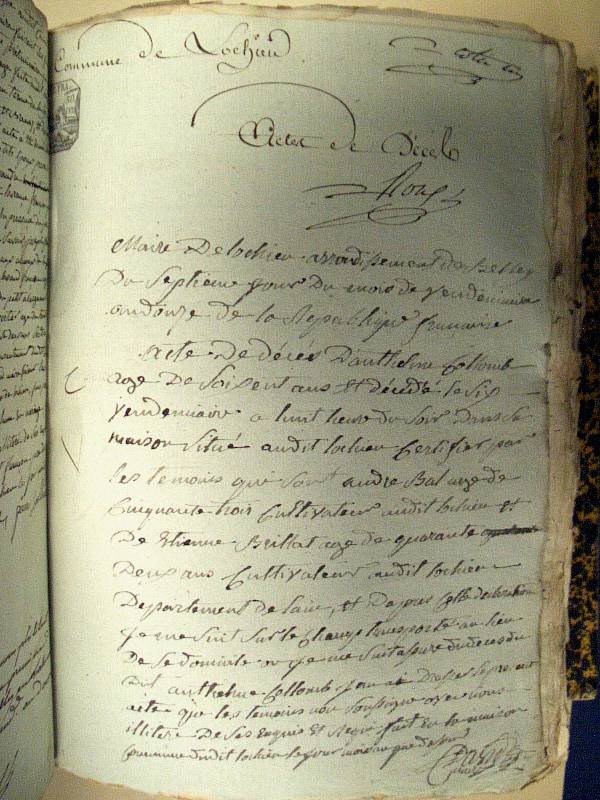 Commune de Lochieu
Actes de Décès
Mairie De lochieu arrondissement de Belley
Du Septieme jour Du mois de vendemiaire
an donze de la République française
acte De décés D'anthelme Collomb
age De Soisent ans Et décédé le six
vendemiaire a huit heure du Soir Dans sa
maison Situé audit lochieu Certifier par
les temoins qui sont andre Balaz age de
Cinquante trois Cultivateur audit lochieu Et
De Etienne Brillat age de quarante
Deux ans Cultivateur audit lochieu
Departement de lain, Et Dapres Cette declaration
je me suis Sur le Champ transporté au lieu
De Se domicile ou je me suis assuré du deces du
Dit anthelme Collomb Jen ai Dressé le present
acte que les temoins non Soussigne avec nous
illitere De Ses Enquis Et Requis fait En la maison
Commune dudit lochieu le jour mois an que dessus